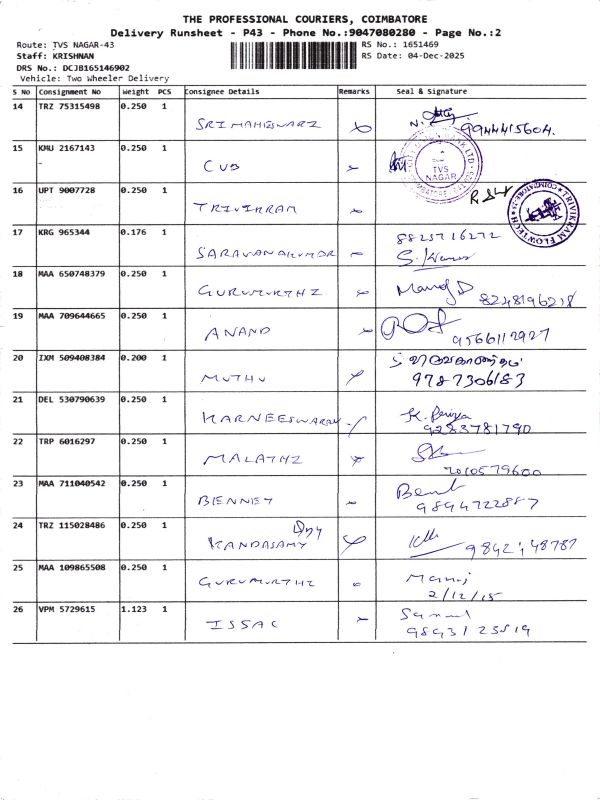 THE PROFESSIONAL COURIERS, COIMBATORE
Delivery Runsheet - P43 - Phone No.:9047080280 - Page No.:2
Route: TVS NAGAR-43
RS No.: 1651469
Staff: KRISHNAN
RS Date: 04-Dec-2025
DRS No.: DCJB165146902
Vehicle: Two Wheeler Delivery
S No Consignment No Weight PCS Consignee Details Remarks Seal & Signature
14 TRZ 75315498 0.250 1
SRI MAHESWARI 9944415604
15 KMU 2167143 0.250 1
CUB
TVS NAGAR
16 UPT 9007728 0.250 1
TRIVIKRAM
TRIVIKRAM FLOWTECH
17 KRG 965344 0.176 1
SARAVANAKUMAR
18 MAA 650748379 0.250 1
GURUMURTHI Manoj D
8248196218
19 MAA 709644665 0.250 1
ANAND
9566112927
20 IXM 509408384 0.200 1
MUTHU 9787306183
21 DEL 530790639 0.250 1
KARNEESWARAN K. Priya
9283781790
22 TRP 6016297 0.250 1
MALATHI
23 MAA 711040542 0.250 1
BENNEY
9894722887
24 TRZ 115028486 0.250 1
KANDASAMY
25 MAA 109865508 0.250 1
GURUMURTHI Manoj
26 VPM 5729615 1.123 1
ISSAC